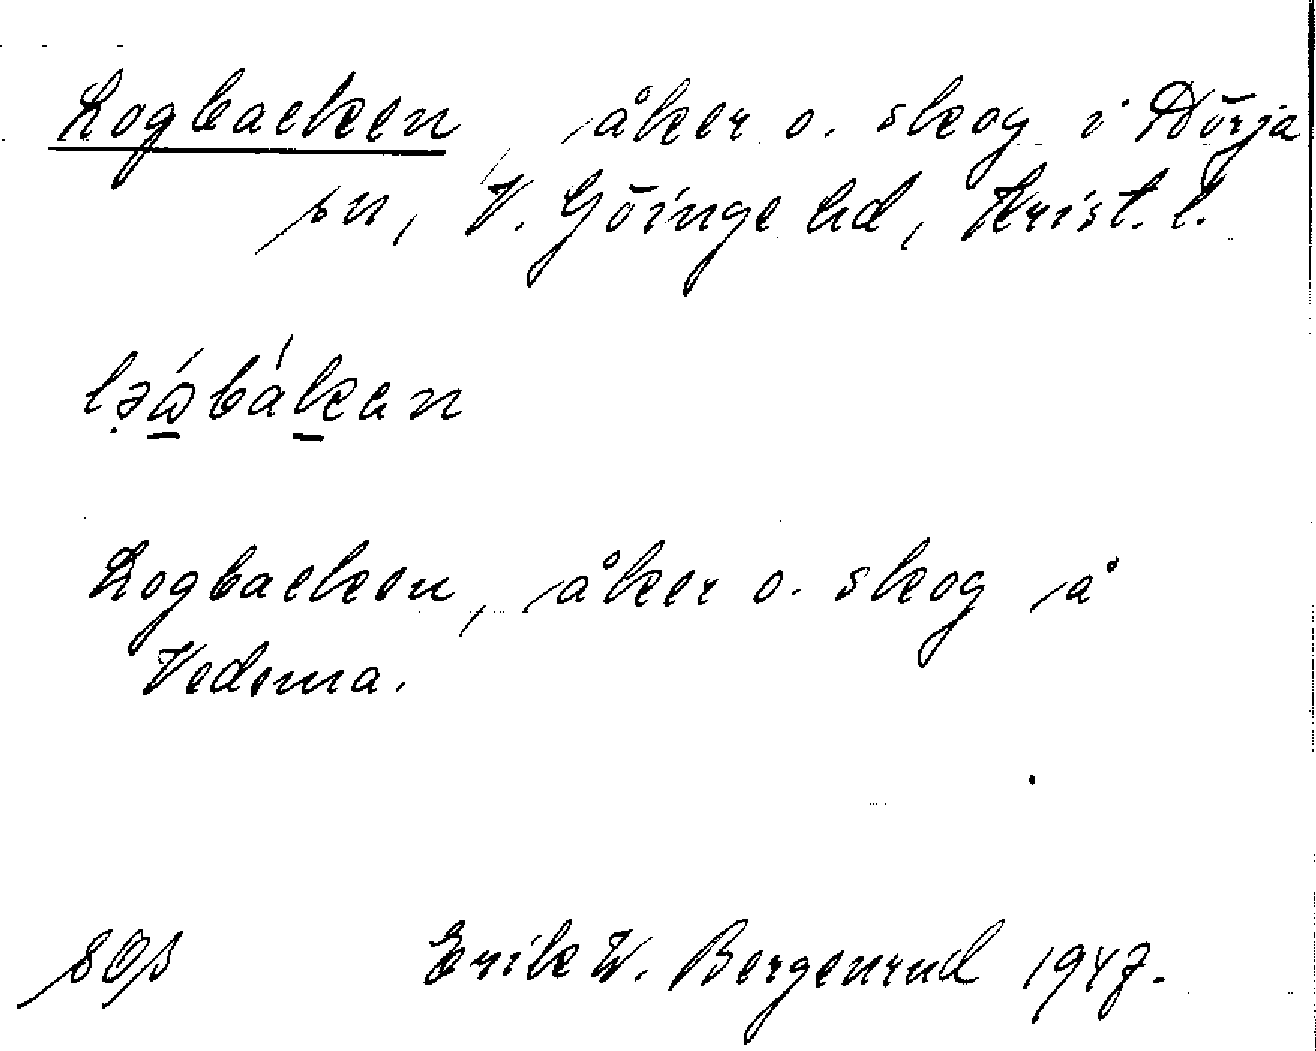 Logbacken, åker o. skog i Nörja
sn, V. Göinge hd, Krist. l.
Logbacken, åker o. skog å
Vedema.
Erik W. Bergenrud 1947.